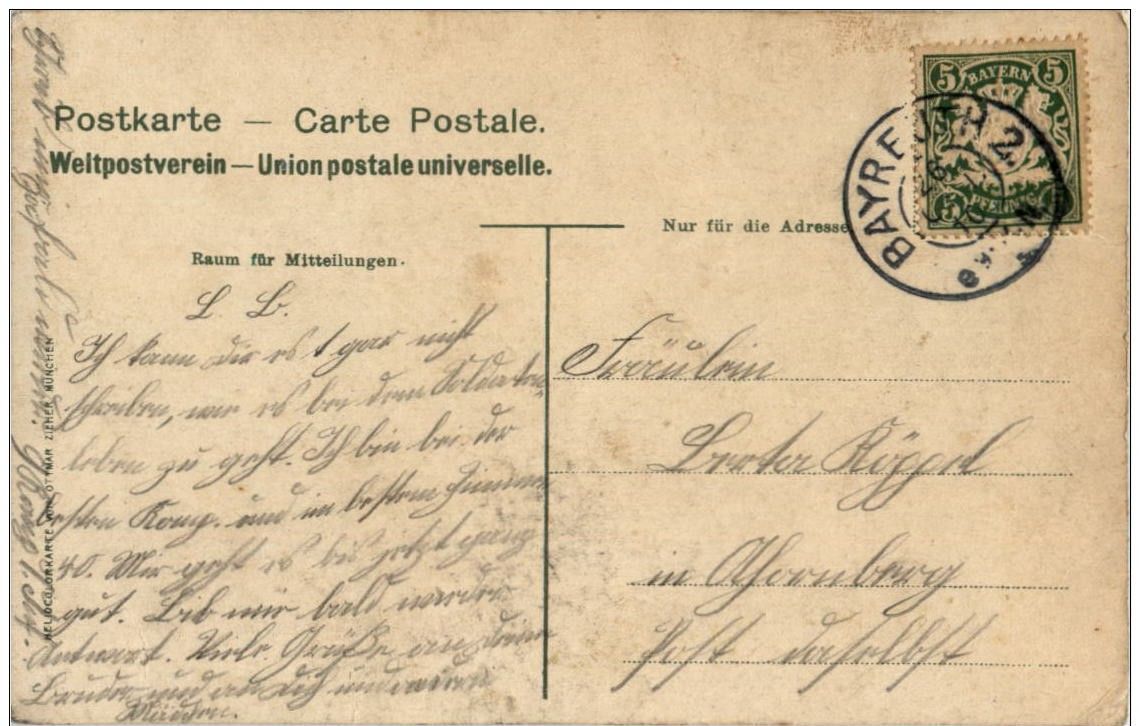 Postkarte — Carte Postale.
Weltpostverein — Union postale universelle.
5 BAYERN 5
5 PFENNIG 5
BAYREUTH 2.
Nur für die Adresse
Raum für Mitteilungen.
L. B.
Ich kann dir es gar nicht
schreiben, wie es bei dem Soldaten-
leben zu geht. Ich bin bei der
besten Komp. und im besten Zimmer
40. Mir geht es bis jetzt ganz
gut. Gib mir bald wieder
Antwort. Viele Grüße an deine
Brüder und an dich und
Fräulein
Berta Köppel
in Thornberg
Post daselbst
HELIOCOLORKARTE VON OTTMAR ZIEHER, MÜNCHEN